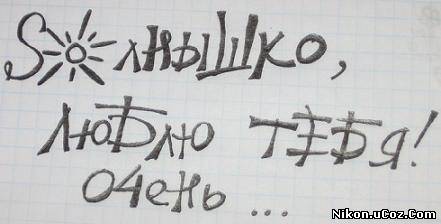 Sолнышко,
люблю тебя!
очень ...
Nikon.uCoz.Com